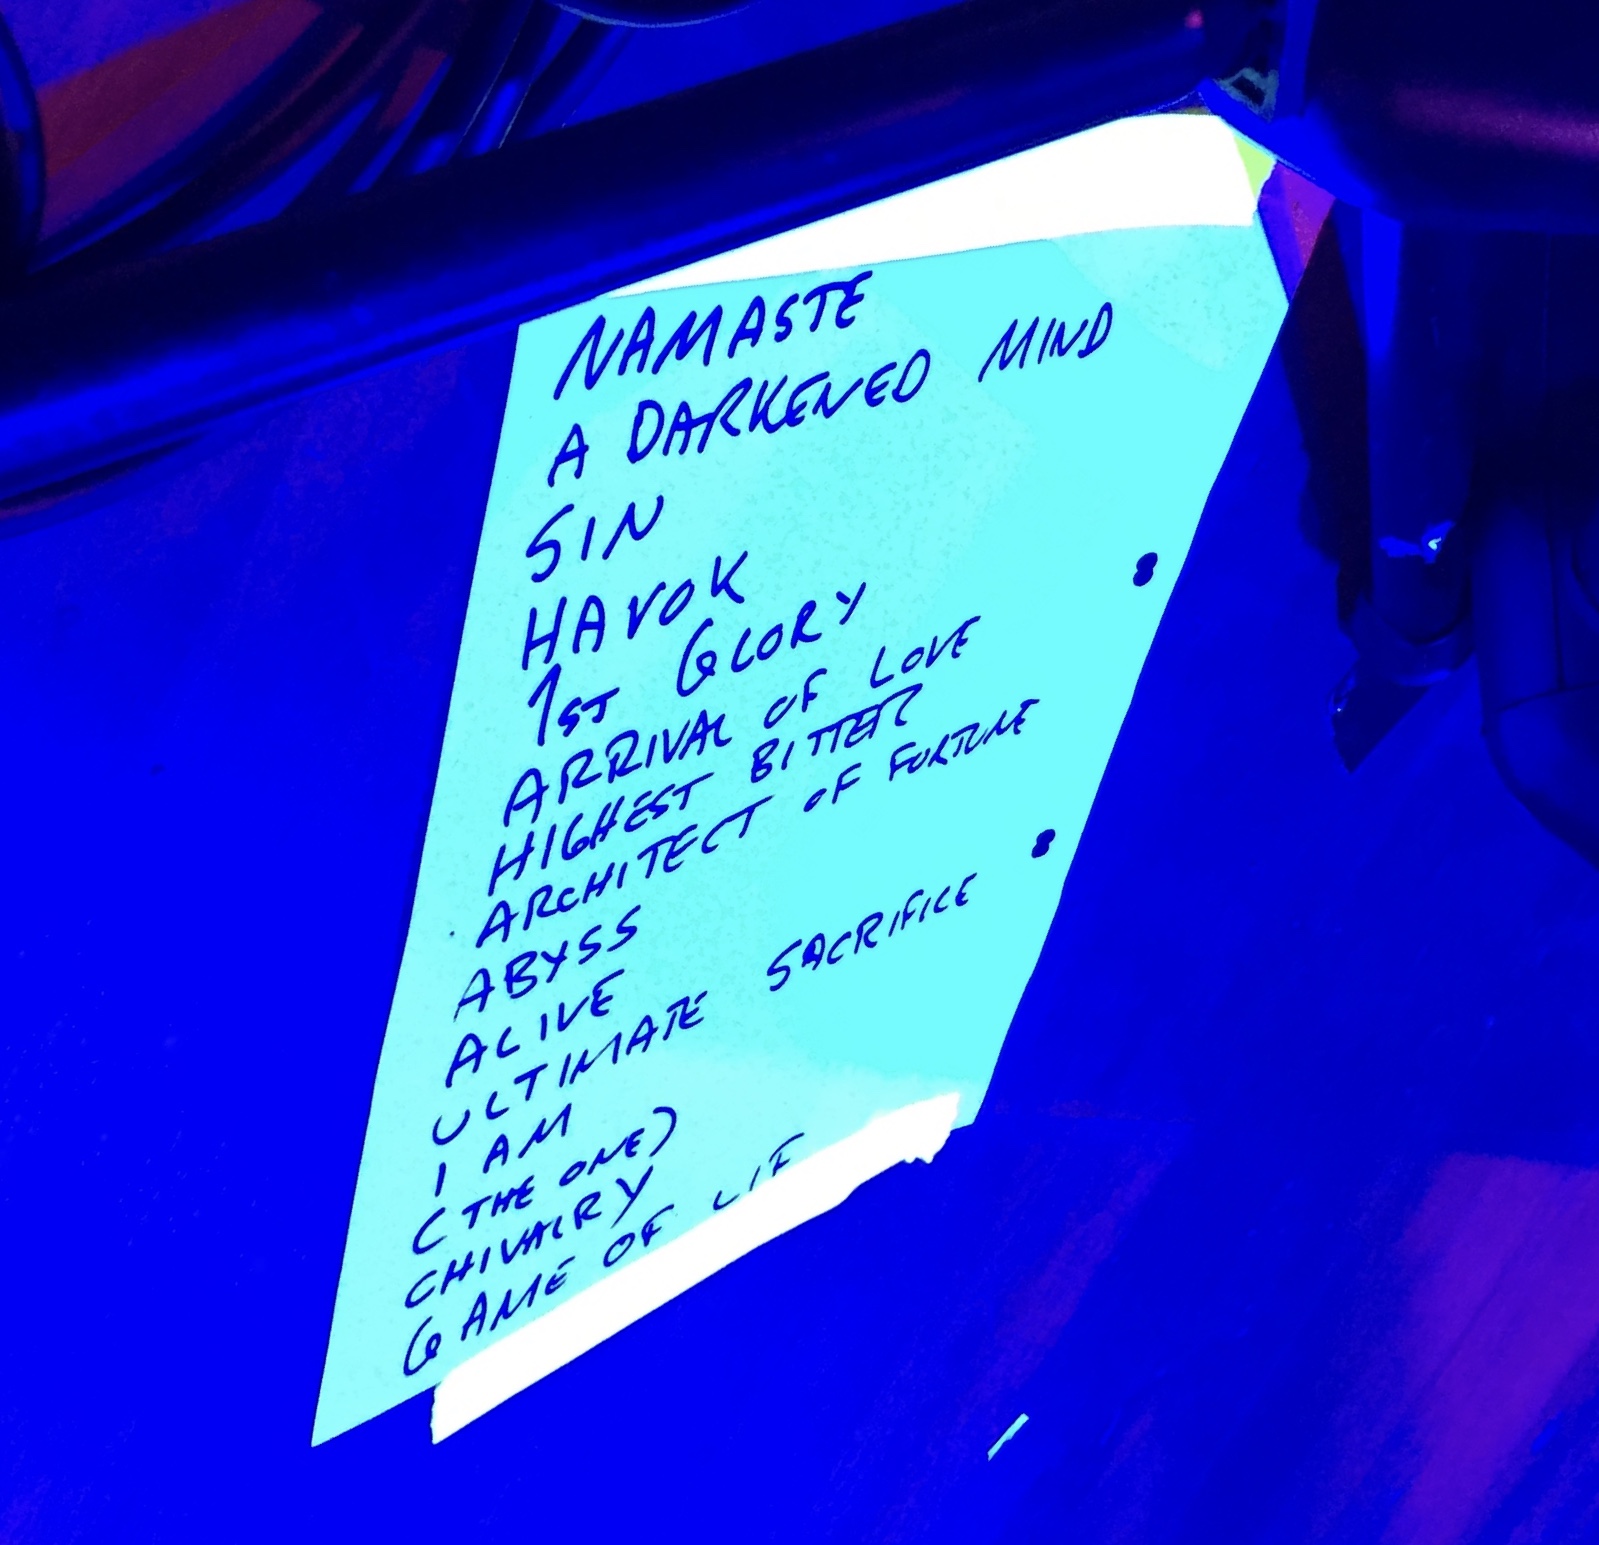 NAMASTE
A DARKENED MIND
SIN
HAVOK
1ST GLORY
ARRIVAL OF LOVE
HIGHEST BITTER
ARCHITECT OF FORTUNE
ABYSS
ALIVE
ULTIMATE SACRIFICE
I AM
(THE ONE)
CHIVALRY
GAME OF LIF